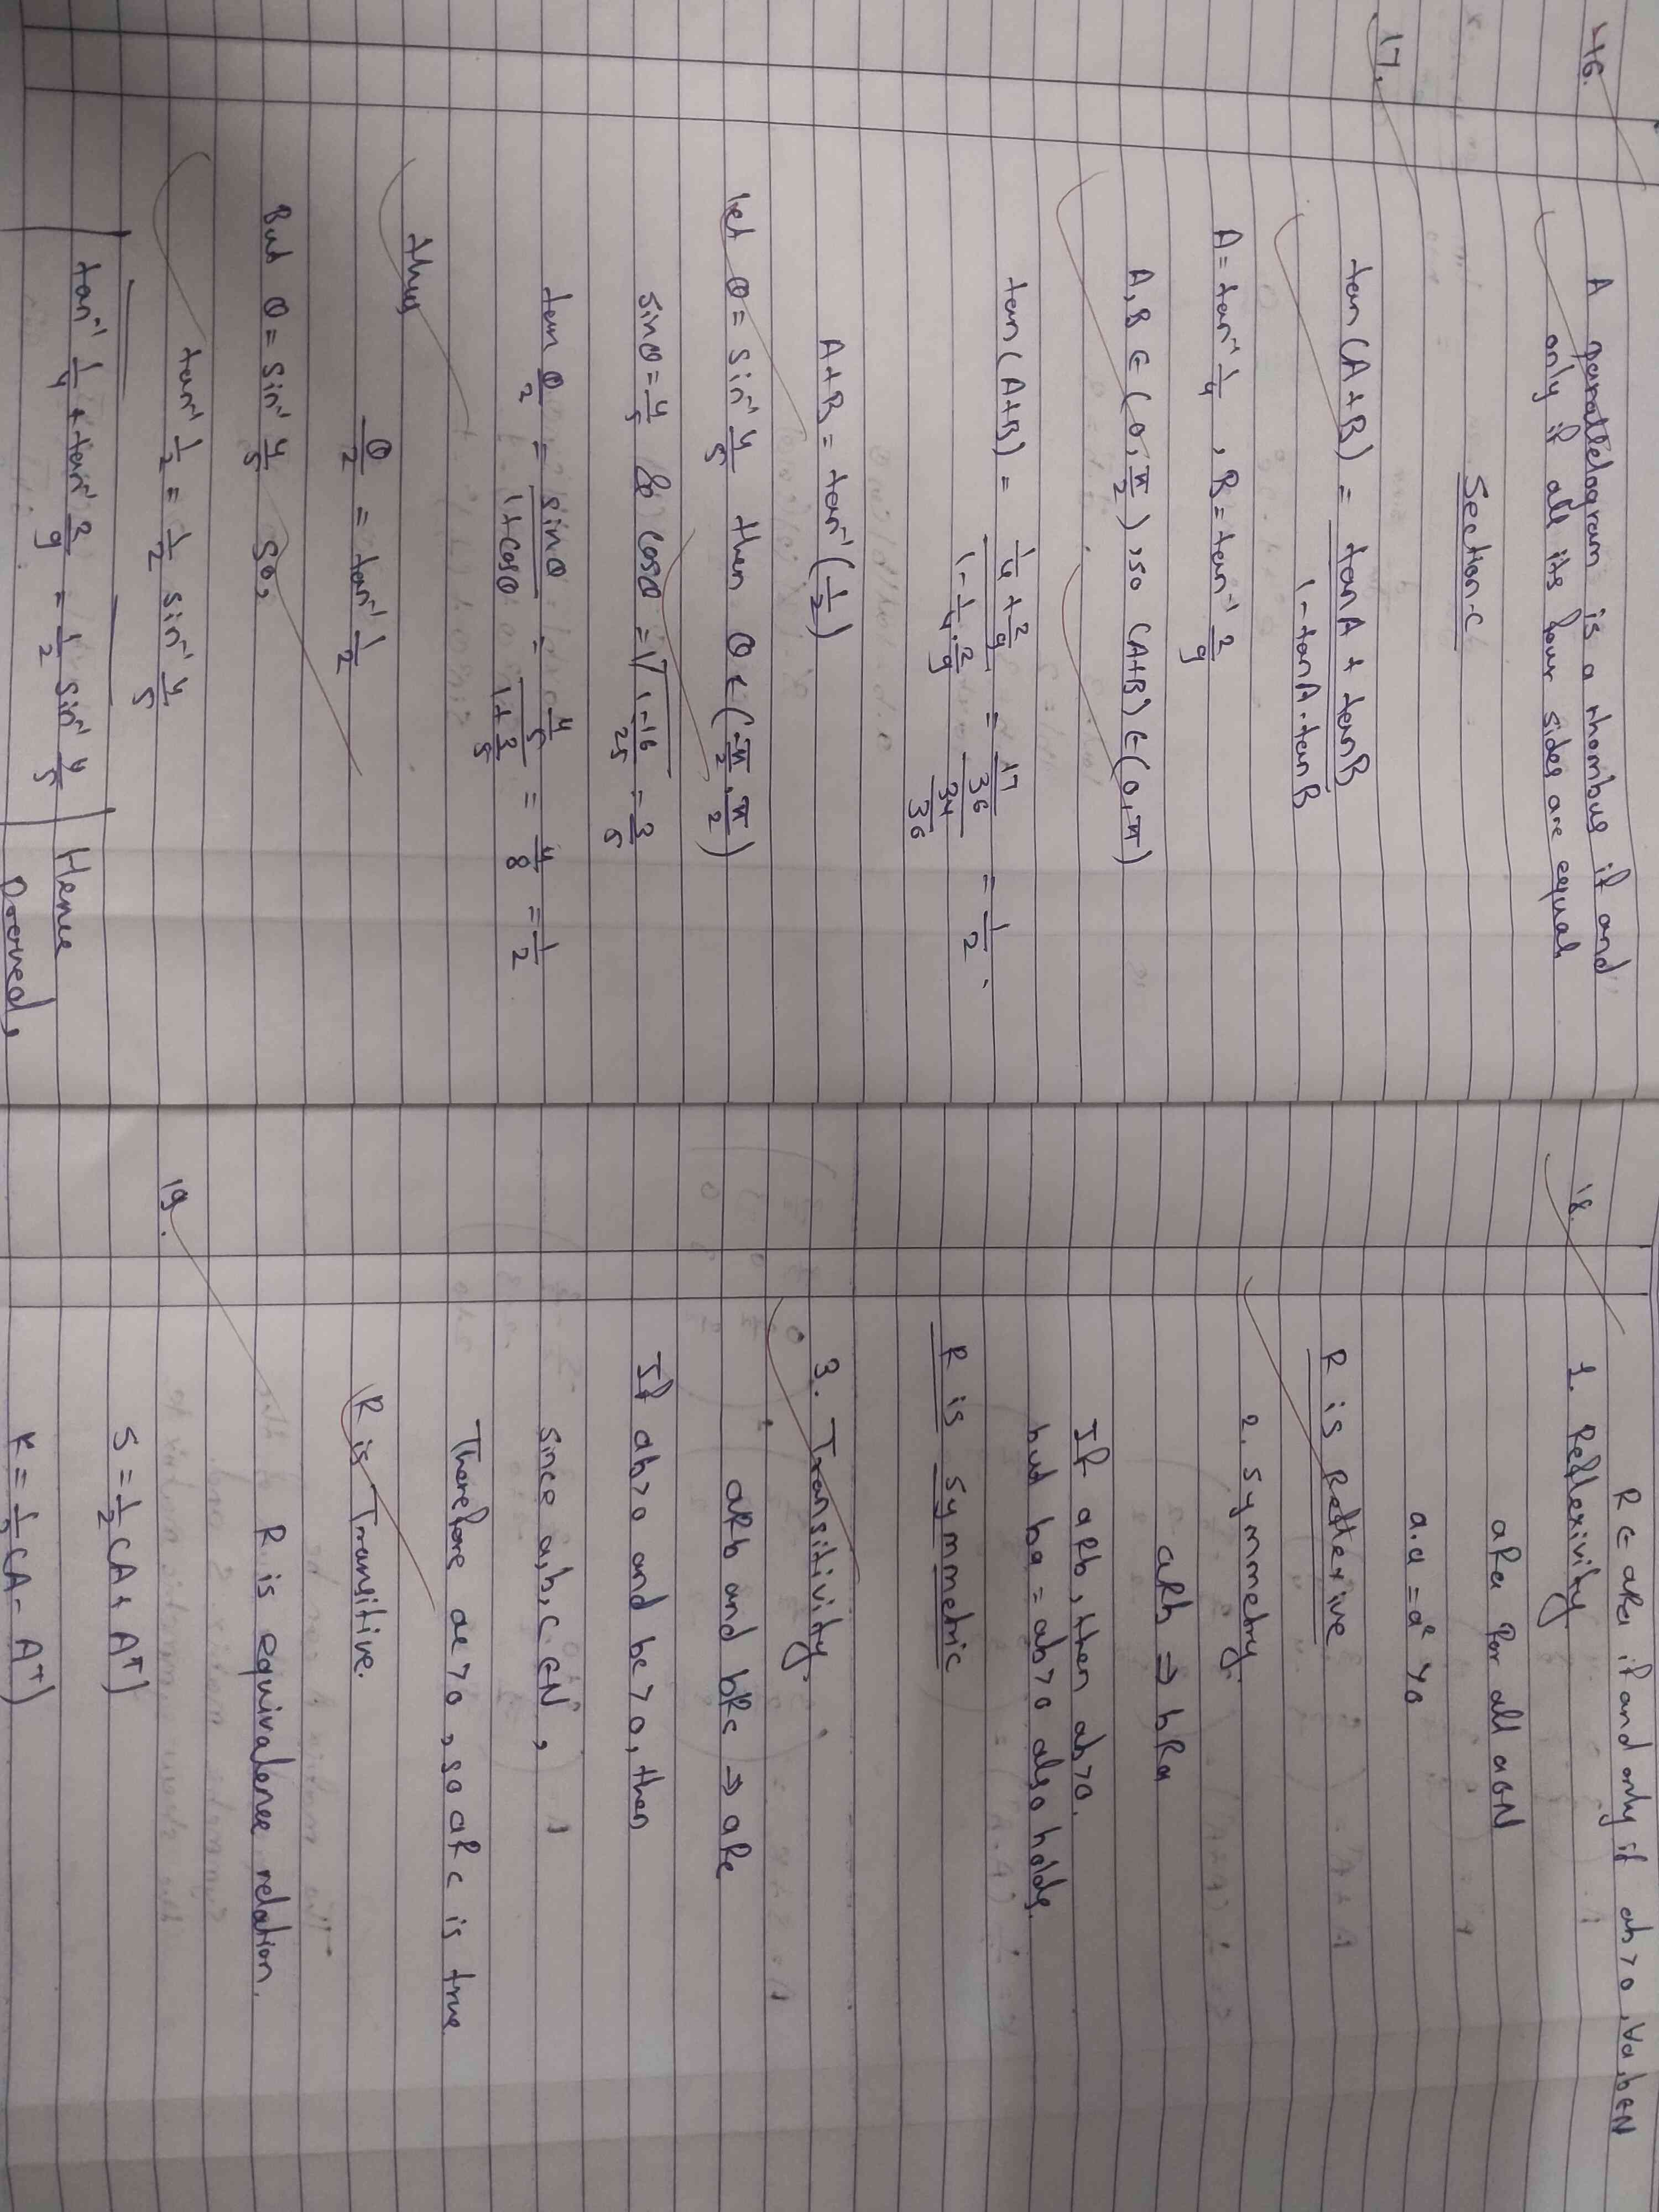 16. A parallelogram is a rhombus if and
only if all its four sides are equal
Section-C
17. tan(A+B) = tanA + tanB / 1-tanA.tanB
A = tan⁻¹ 1/4 , B = tan⁻¹ 2/9
A, B ∈ (0, π/2), so (A+B) ∈ (0, π)
tan(A+B) = (1/4 + 2/9) / (1 - 1/4 . 2/9) = (17/36) / (34/36) = 1/2 .
A+B = tan⁻¹(1/2)
let θ = sin⁻¹ 4/5 then θ ∈ (-π/2, π/2)
sinθ = 4/5 & cosθ = √(1-16/25) = 3/5
tan θ/2 = sinθ / 1+cosθ = (4/5) / (1+3/5) = 4/8 = 1/2
thus
θ/2 = tan⁻¹ 1/2
But θ = sin⁻¹ 4/5 so,
tan⁻¹ 1/2 = 1/2 sin⁻¹ 4/5
tan⁻¹ 1/4 + tan⁻¹ 2/9 = 1/2 sin⁻¹ 4/5 Hence
Proved,
18. R ∈ aRb if and only if ab>0, ∀a,b∈N
1. Reflexivity.
aRa for all a∈N
a.a = a² >0
R is Reflexive
2. Symmetry.
aRb ⇒ bRa
If aRb, then ab>0.
but ba = ab>0 also holds.
R is symmetric
3. Transitivity.
aRb and bRc ⇒ aRc
If ab>0 and bc>0, then
Since a,b,c ∈N,
Therefore ac>0, so aRc is true
R is Transitive.
R is equivalence relation.
19. S = 1/2 (A + Aᵀ)
K = 1/2 (A - Aᵀ)